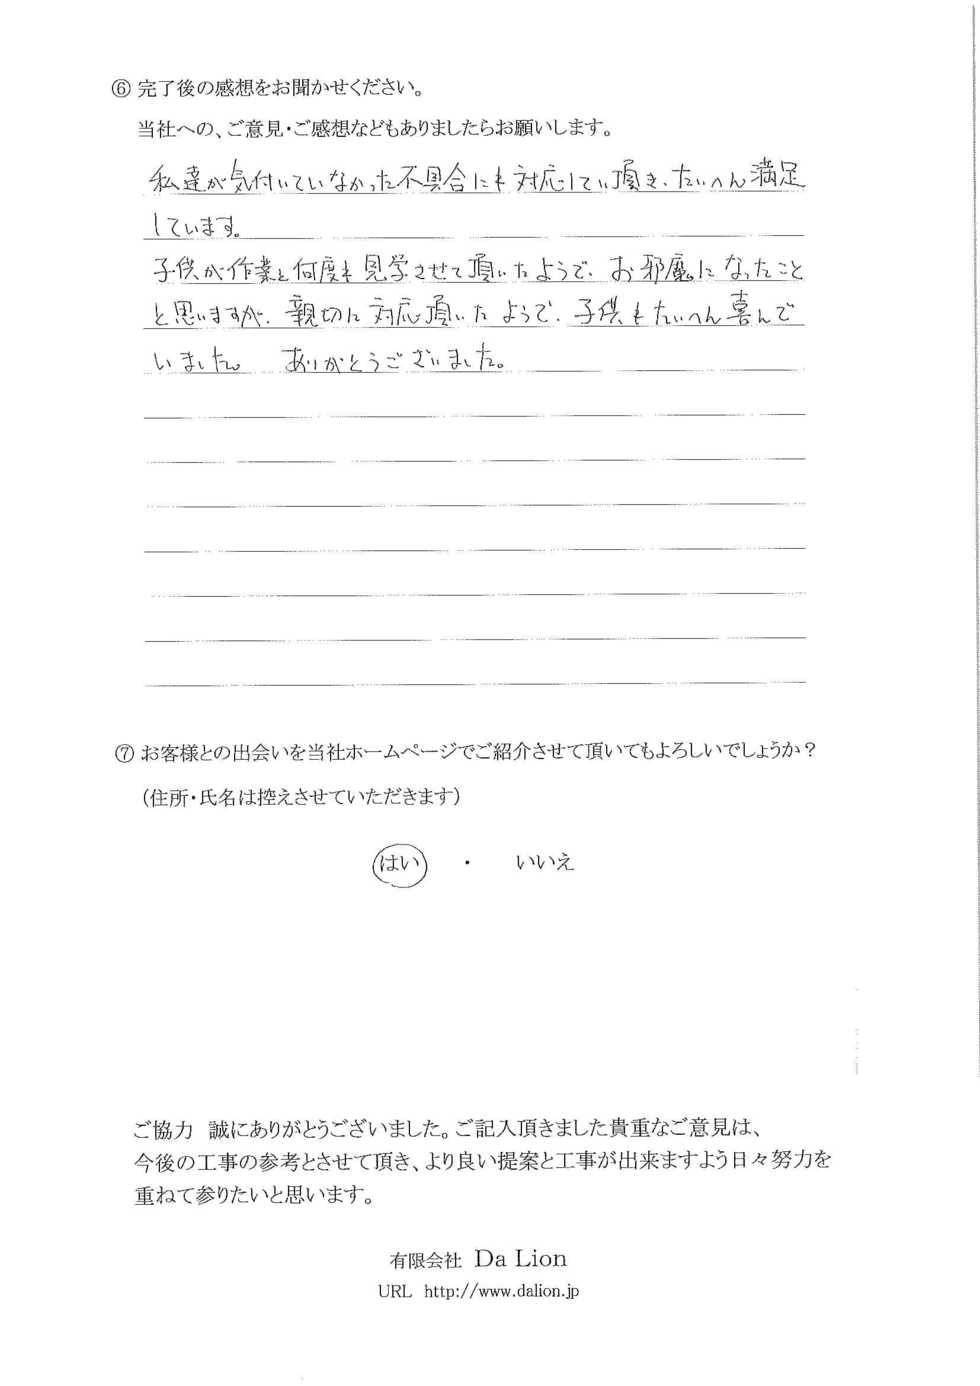 ⑥ 完了後の感想をお聞かせください。
当社への、ご意見・ご感想などもありましたらお願いします。
私達が気付いていなかった不具合にも対応してい頂き、たいへん満足
しています。
子供が作業を何度も見学させて頂いたようで、お邪魔になったこと
と思いますが、親切に対応頂いたようで、子供もたいへん喜んで
いました。 ありがとうございました。
⑦ お客様との出会いを当社ホームページでご紹介させて頂いてもよろしいでしょうか？
（住所・氏名は控えさせていただきます）
はい ・ いいえ
ご協力 誠にありがとうございました。ご記入頂きました貴重なご意見は、
今後の工事の参考とさせて頂き、より良い提案と工事が出来ますよう日々努力を
重ねて参りたいと思います。
有限会社 Da Lion
URL http://www.dalion.jp